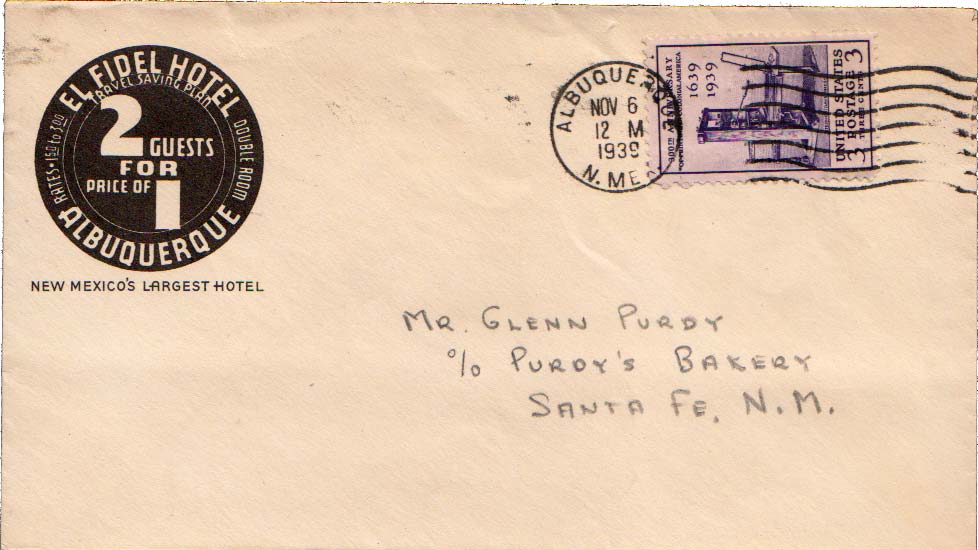 EL FIDEL HOTEL
TRAVEL SAVING PLAN
2 GUESTS
FOR
PRICE OF 1
RATES • 1.50 to 3.00
DOUBLE ROOM
ALBUQUERQUE
NEW MEXICO'S LARGEST HOTEL
ALBUQUERQ
NOV 6
12 M
1939
N. MEX
300TH ANNIVERSARY
1639
1939
UNITED STATES
3 POSTAGE 3
THREE CENTS
MR. GLENN PURDY
% PURDY'S BAKERY
SANTA FE, N.M.